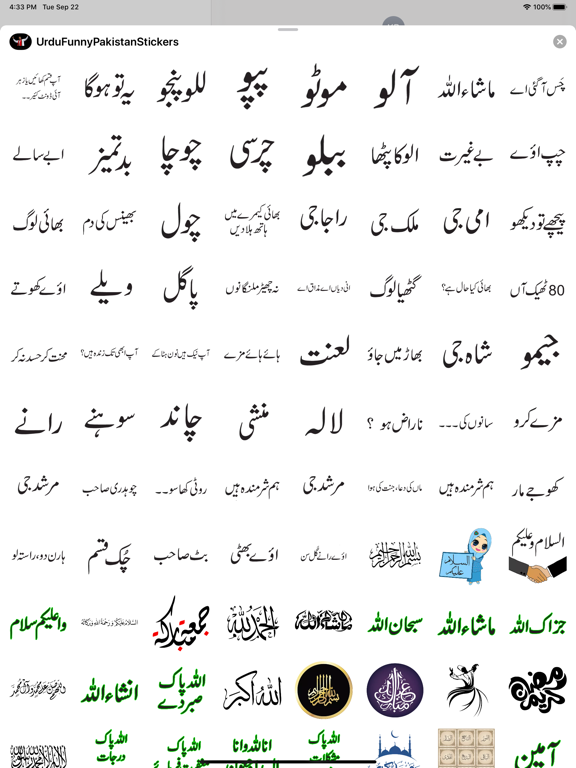 4:33 PM Tue Sep 22
100%
UrduFunnyPakistanStickers
چَس آ گئی اے
ماشاءاللہ
آلو
موٹو
پپو
للو پنجو
یہ تو ہوگا
چپ اوئے
بے غیرت
الو کا پٹھا
ببلو
چرسی
چوچا
بدتمیز
ابے سالے
پیچھے تو دیکھو
امی جی
ملک جی
راجا جی
بھائی کیمرے میں
ہاتھ ہلا دیں
چول
بھینس کی دم
بھائی لوگ
80 ٹھیک آں
بھائی کیا حال ہے؟
گٹھیا لوگ
انی دیاں اے مذاق اے
نہ چھیڑ ملنگا نوں
پاگل
ویلے
اوئے کھوتے
جیمو
شاہ جی
بھاڑ میں جاؤ
لعنت
ہائے ہائے مزے
آپ ابھی تک زندہ ہیں؟
محنت کر حسد نہ کر
مزے کرو
سانوں کی۔۔۔
ناراض ہو ؟
لالہ
منشی
چاند
سوہنے
رانے
کھوجے مار
ہم شرمندہ ہیں
ماں کی دعا، جنت کی ہوا
مرشد جی
ہم شرمندہ ہیں
روٹی کھا سو۔۔
چوہدری صاحب
مرشد جی
السلام و علیکم
السلام
علیکم
بسم اللہ الرحمن الرحیم
اوئے رانے گل سن
اوئے بھٹی
بٹ صاحب
چُک قسم
ہارن دو، راستہ لو
جزاک اللہ
ماشاءاللہ
سبحان اللہ
ماشاءاللہ
الحمدللہ
جمعة مبارکہ
السلام علیکم ورحمة اللہ وبرکاتہ
واعلیکم سلام
رمضان کریم
عید مبارک
اللہ اکبر
اللہ پاک
صبر دے
انشاءاللہ
آمین
اللہ پاک
مشکلات
انا للہ وانا
اللہ پاک
اللہ پاک
درجات